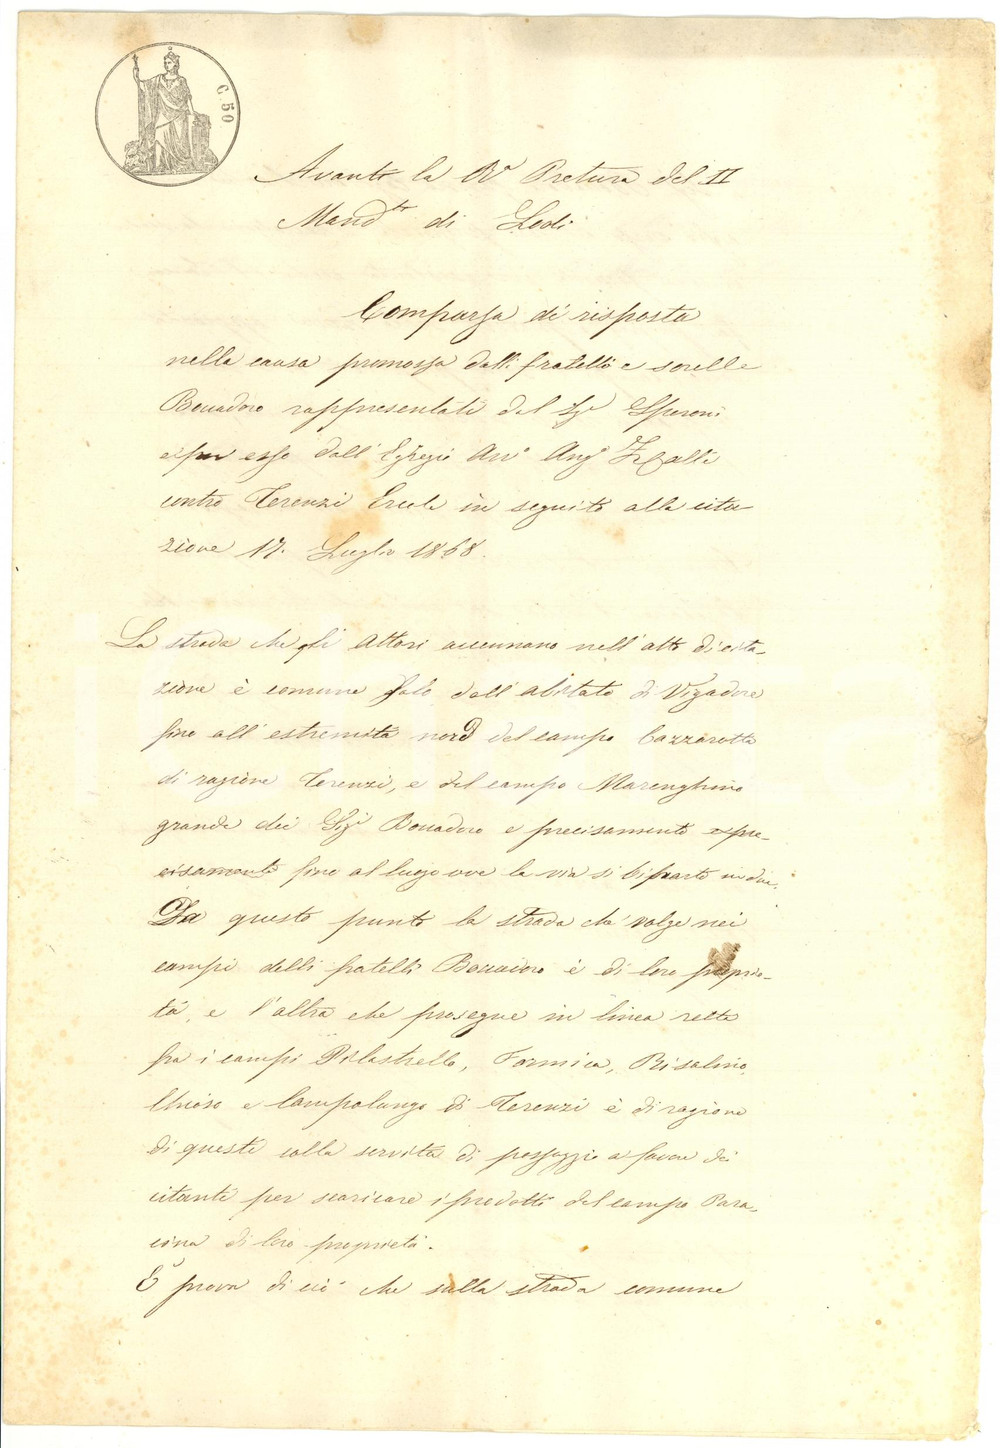 C. 50
Avanti la R.ª Pretura del II
Mand.to di Lodi
Comparsa di risposta
nella causa promossa dalli fratelli e sorelle
Bonadoro rappresentati dal Sg.r Speroni
e per esso dall'Egregio Avv.o Ang.o Zalli
contro Terenzi Ercole in seguito alla cita
zione 17. Luglio 1868.
La strada che gli Attori accennano nell'atto di cita-
zione è comune solo dall'abitato di Vigadore
fino all'estremità nord del campo Cazzarotta
di ragione Terenzi, e del campo Marenghino
grande dei Sig.i Bonadoro e precisamente e pre-
cisamente fino al luogo ove la via si biparte in due.
Da questo punto la strada che volge nei
campi delli fratelli Bonadoro è di loro proprie-
tà, e l'altra che prosegue in linea retta
fra i campi Pilastrello, Fornica, Risolino,
Chioso e Campolungo di Terenzi è di ragione
di questi colla servitù di passaggio a favore dei
citanti per scaricare i prodotti del campo Para-
cina di loro proprietà.
È prova di ciò che sulla strada comune